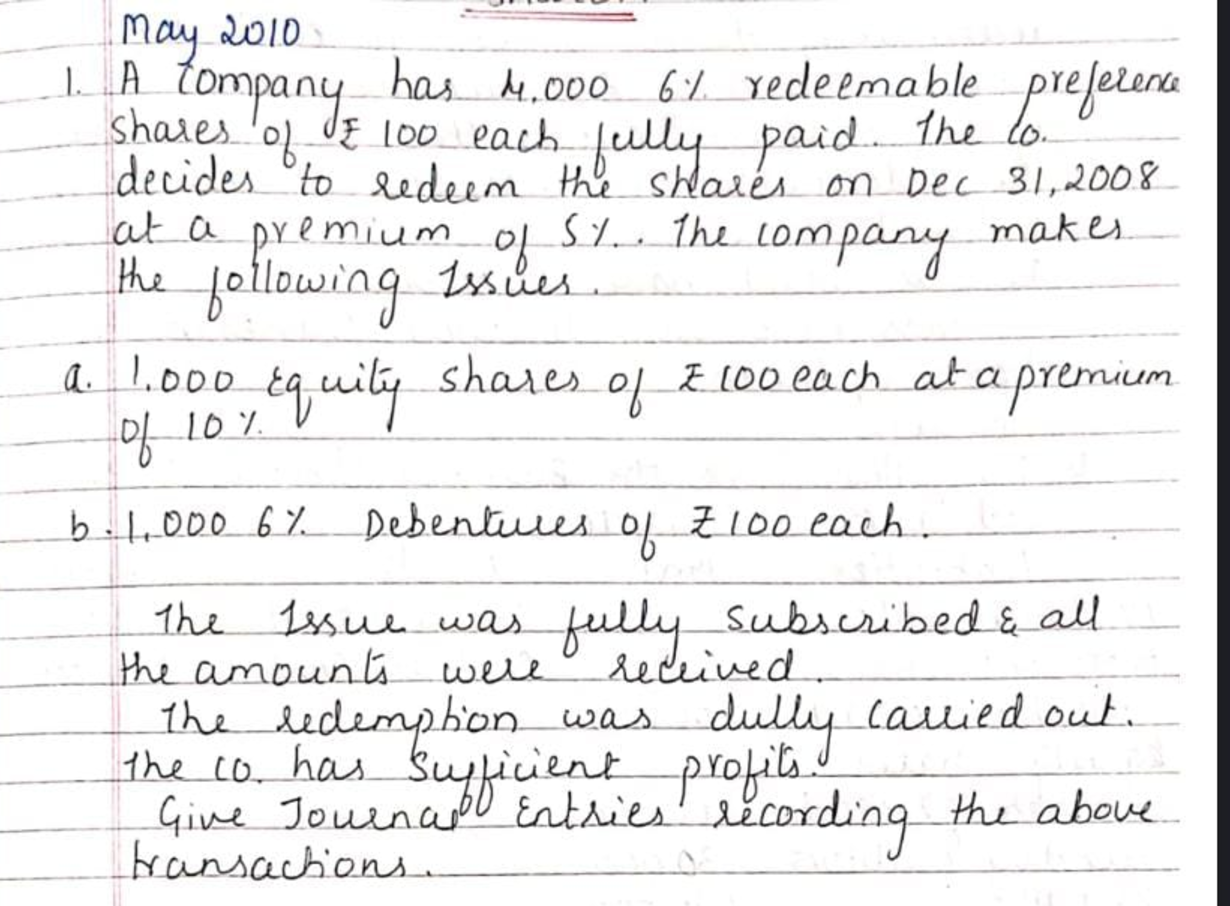 May 2010
1. A company has 4,000 6% redeemable preference
shares of ₹ 100 each fully paid. The Co.
decides to redeem the shares on Dec 31, 2008
at a premium of 5%.. The company makes
the following Issues.
a. 1,000 Equity shares of ₹ 100 each at a premium
of 10%.
b. 1,000 6% Debentures of ₹ 100 each.
The Issue was fully subscribed & all
the amounts were received.
The redemption was dully carried out.
The co. has sufficient profits.
Give Journal Entries recording the above
transactions.